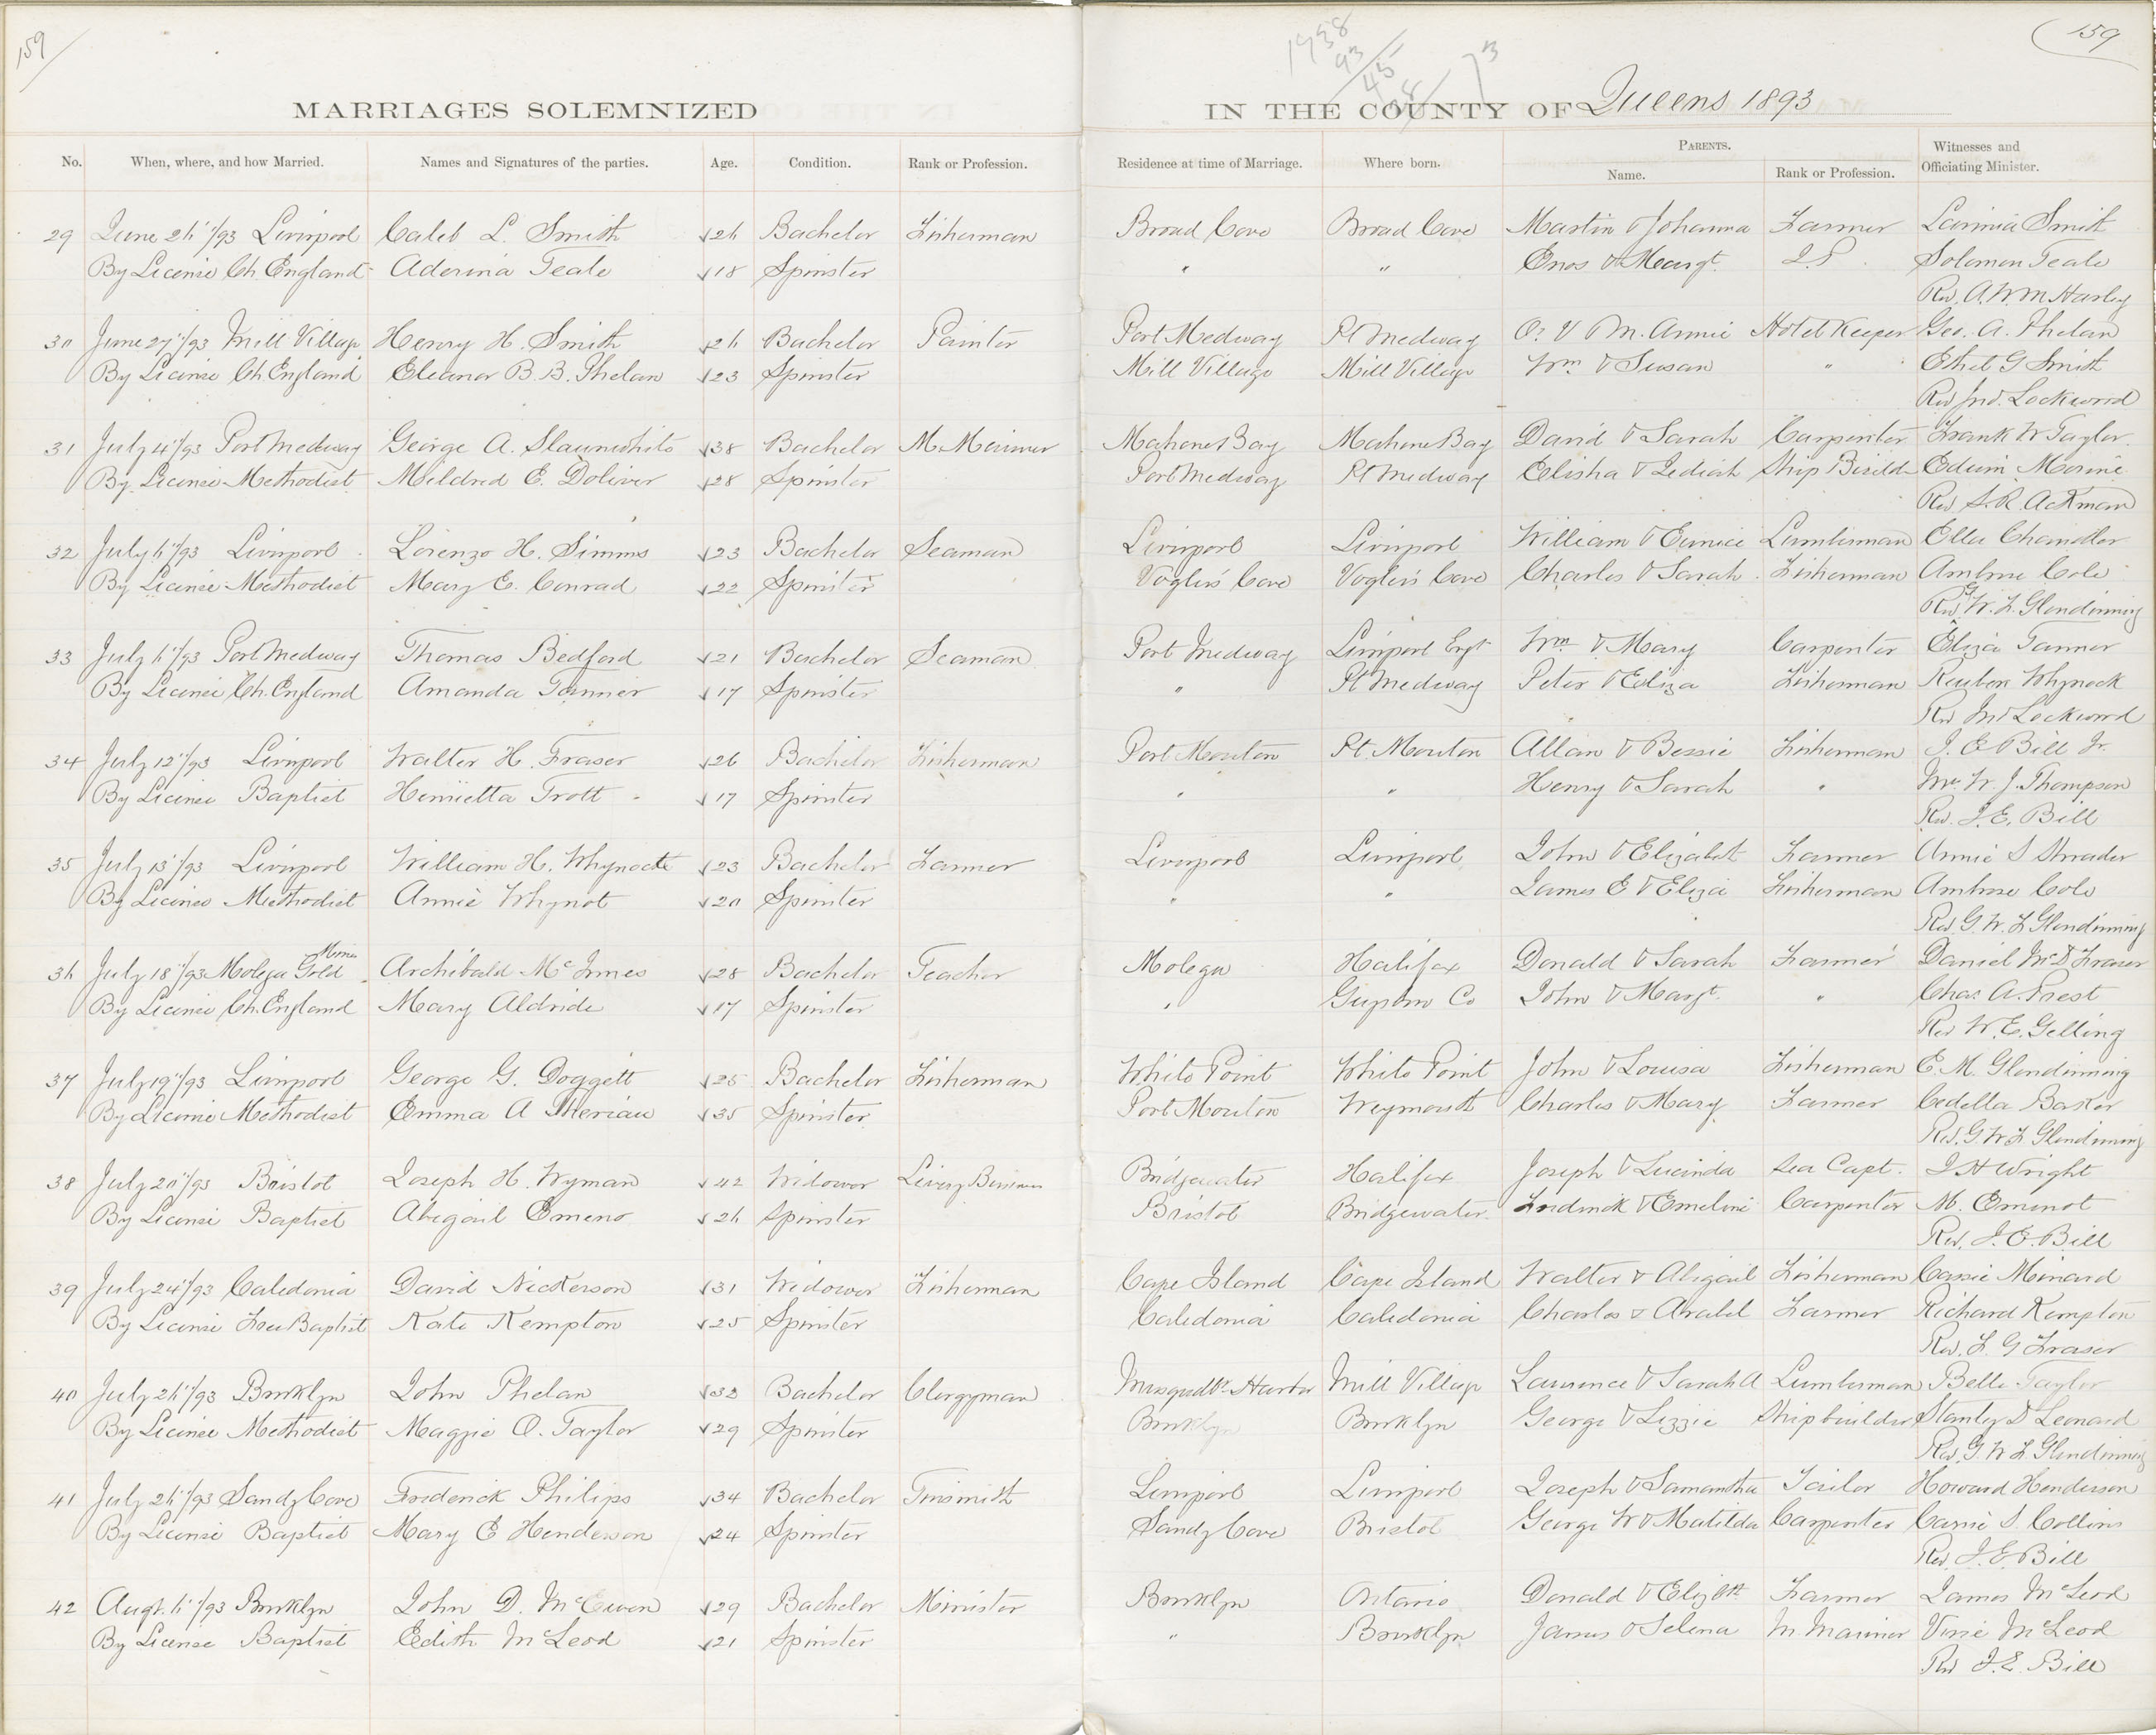 159
159
1938
93
45
73
MARRIAGES SOLEMNIZED IN THE COUNTY OF Queens 1893
No. When, where, and how Married. Names and Signatures of the parties. Age. Condition. Rank or Profession. Residence at time of Marriage. Where born. PARENTS. Name. Rank or Profession. Witnesses and Officiating Minister.
29 June 26"/93 Liverpool Caleb L. Smith 26 Bachelor Fisherman Broad Cove Broad Cove Martin & Johanna Farmer Lavinia Smith
By License Ch England Aderina Teale 18 Spinster " " Enos & Margt. J.P. Solomon Teale
Rev. A.W.M. Harley
30 June 27"/93 Mill Village Henry H. Smith 26 Bachelor Painter Port Medway Pt Medway O. & M. Annie Hotel Keeper Geo. A. Phelan
By License Ch England Eleanor B. B. Phelan 23 Spinster Mill Village Mill Village Wm & Susan " Ethel G Smith
Rev Jno. Lockward
31 July 4"/93 Port Medway George A. Slaunwhite 38 Bachelor M. Mariner Mahone Bay Mahone Bay David & Sarah Carpenter Frank W Taylor
By License Methodist Mildred E. Doliver 28 Spinster Port Medway Pt Medway Elisha & Lediah Ship Build Edwin Morine
Rev S.R. Ackman
32 July 6"/93 Liverpool Lorenzo H. Simms 23 Bachelor Seaman Liverpool Liverpool William & Eunice Lumberman Ella Chandler
By License Methodist Mary E. Conrad 22 Spinster Voglers Cove Voglers Cove Charles & Sarah Fisherman Ambrose Cole
Rev G W. F. Glendinning
33 July 6"/93 Port Medway Thomas Bedford 21 Bachelor Seaman Port Medway Liverpool Engt Wm & Mary Carpenter Eliza Tanner
By License Ch. England Amanda Tanner 17 Spinster " Pt Medway Peter & Eliza Fisherman Reuben Whynock
Rev Jno Lockward
34 July 12"/93 Liverpool Walter H. Fraser 26 Bachelor Fisherman Port Mouton Pt. Mouton Allan & Bessie Fisherman I. E Bill Jr.
By License Baptist Henrietta Trott 17 Spinster " " Henry & Sarah " Mrs. W. J. Thompson
Rev. I.E. Bill
35 July 13"/93 Liverpool William H. Whynocte 23 Bachelor Farmer Liverpool Liverpool John & Elizabet Farmer Annie S Shrader
By License Methodist Annie Whynot 20 Spinster " " James E & Eliza Fisherman Ambrose Cole
Rev. G. W. F Glendinning
36 July 18"/93 Molega Gold Mine Archibald McInnes 28 Bachelor Teacher Molega Halifax Donald & Sarah Farmer Daniel McD Fraser
By License Ch. England Mary Aldride 17 Spinster " Guysbro Co John & Margt. " Chas. A. Prest
Rev W. E. Gelling
37 July 19"/93 Liverpool George G. Doggett 25 Bachelor Fisherman White Point White Point John & Louisa Fisherman E. M. Glendinning
By License Methodist Emma A Theriau 35 Spinster Port Mouton Weymouth Charles & Mary Farmer Cedella Baxter
Rev. G. W F Glendinning
38 July 20"/93 Bristol Joseph H. Wyman 42 Widower Livery Business Bridgewater Halifax Joseph & Lucinda Sea Capt. I H Wright
By License Baptist Abigail Emeno 26 Spinster Bristol Bridgewater Fredrick & Emeline Carpenter M. Emenot
Rev. I. E. Bill
39 July 24"/93 Caledonia David Nickerson 31 Widower Fisherman Cape Island Cape Island Walter & Abigail Fisherman Cassie Minard
By License Free Baptist Kate Kempton 25 Spinster Caledonia Caledonia Charles & Arabel Farmer Richard Kempton
Rev. F. G Fraser
40 July 26"/93 Brooklyn John Phelan 32 Bachelor Clergyman Musquodbt. Harbor Mill Village Lawrence & Sarah A Lumberman Belle Taylor
By License Methodist Maggie O. Taylor 29 Spinster Brooklyn Brooklyn George & Lizzie Shipbuilder Stanley D Leonard
Rev. G. W F Glendinning
41 July 26"/93 Sandy Cove Frederick Philips 34 Bachelor Tinsmith Liverpool Liverpool Joseph & Samantha Tailor Howard Henderson
By License Baptist Mary E Henderson 24 Spinster Sandy Cove Bristol George W & Matilda Carpenter Carrie S. Collins
Rev I. E. Bill
42 Augt. 6"/93 Brooklyn John D. McEwen 29 Bachelor Minister Brooklyn Ontario Donald & Elizbth Farmer James McLeod
By License Baptist Edith McLeod 21 Spinster " Brooklyn James & Selena M Mariner Vinie McLeod
Rev I.E. Bill